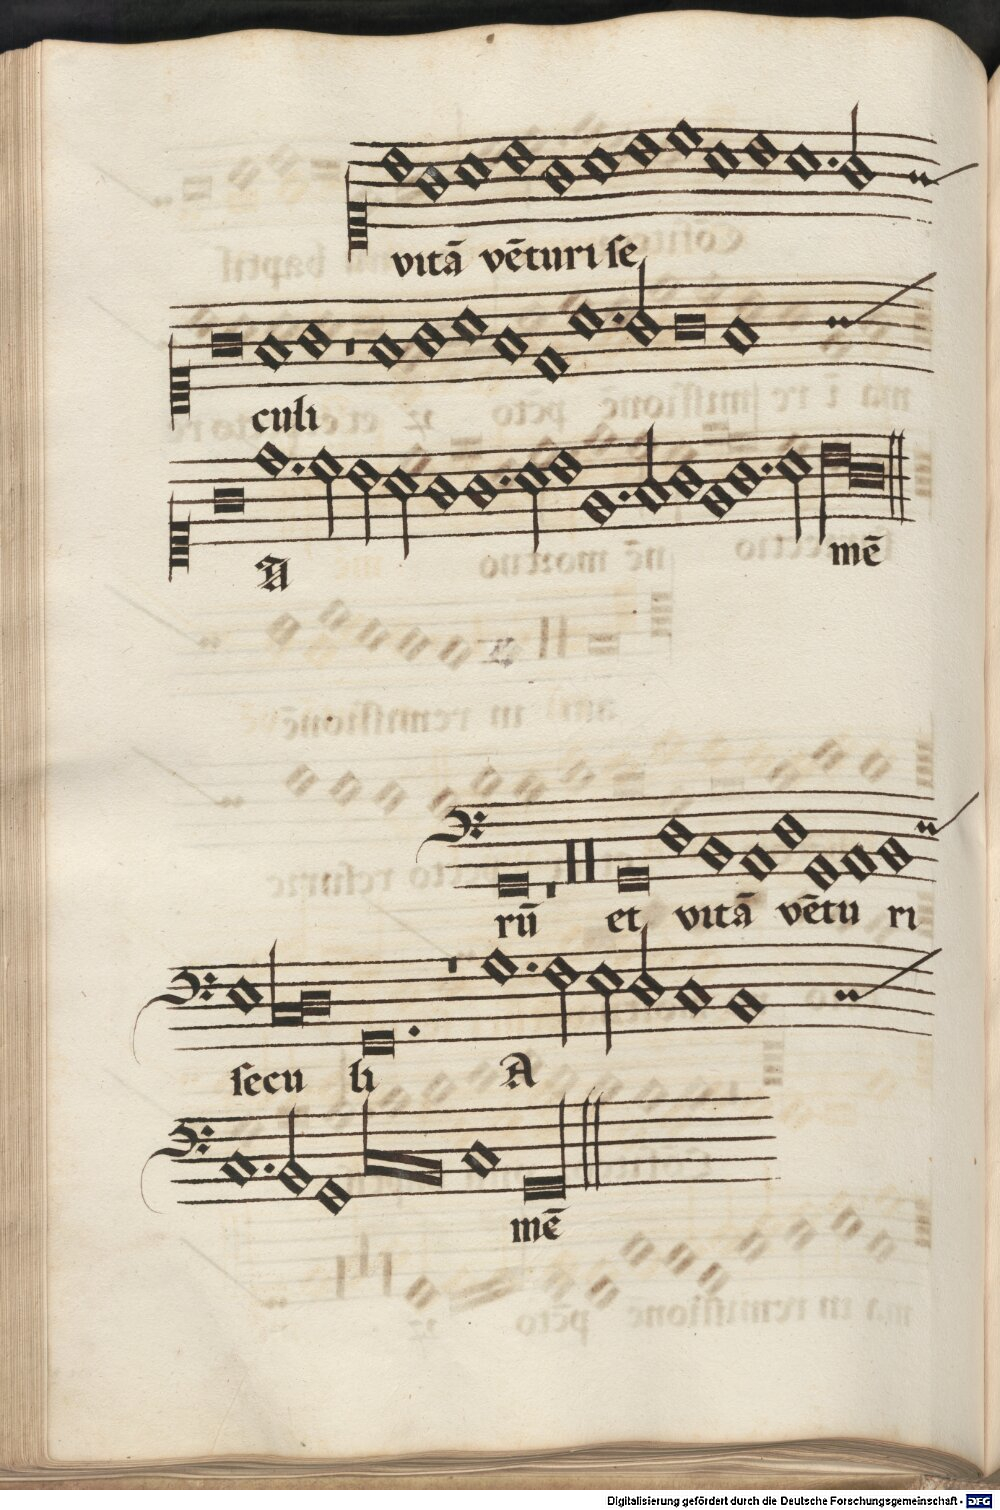 vitā vēturi se
culi
A mē
rū et vitā vētu ri
secu li A
mē
Digitalisierung gefördert durch die Deutsche Forschungsgemeinschaft - DFG